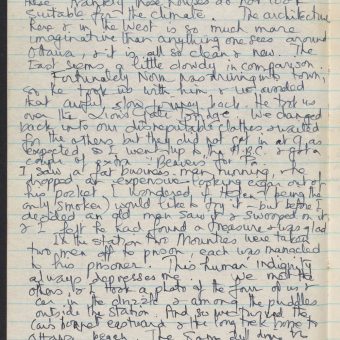 these
houses do not look
suitable for the climate. The architecture
here & in the West is so much more
imaginative than anything one sees around
Ottawa, & it is all so clean & new. The
East seems a little dowdy in comparison.
Fortunately Norm was driving into town,
so he took us with him & we avoided
that awful slow trip back. He took us
over the Lions Gate Bridge. We changed
back into our disreputable clothes & waited
for the others, but they did not get in at 9, as
expected, so I went up to and got a
couple of extra "Beavers" for
I saw a fat business man running & he
dropped an expensive looking cigar out of
his pocket. I wondered if (being the
only smoker) would like to try it – but before I
decided an old man saw it & swooped on it,
& I felt he had found a treasure & was glad
In the station two Mounties were taking
two men off to prison, each was manacled
to his prisoner. This human indignity
always depresses me. We met the
others, & took a photo of the four of us &
car in the drizzle & among the puddles
outside the station. And so we turned the
car's bonnet eastward & the long trek home to
Ottawa began. The